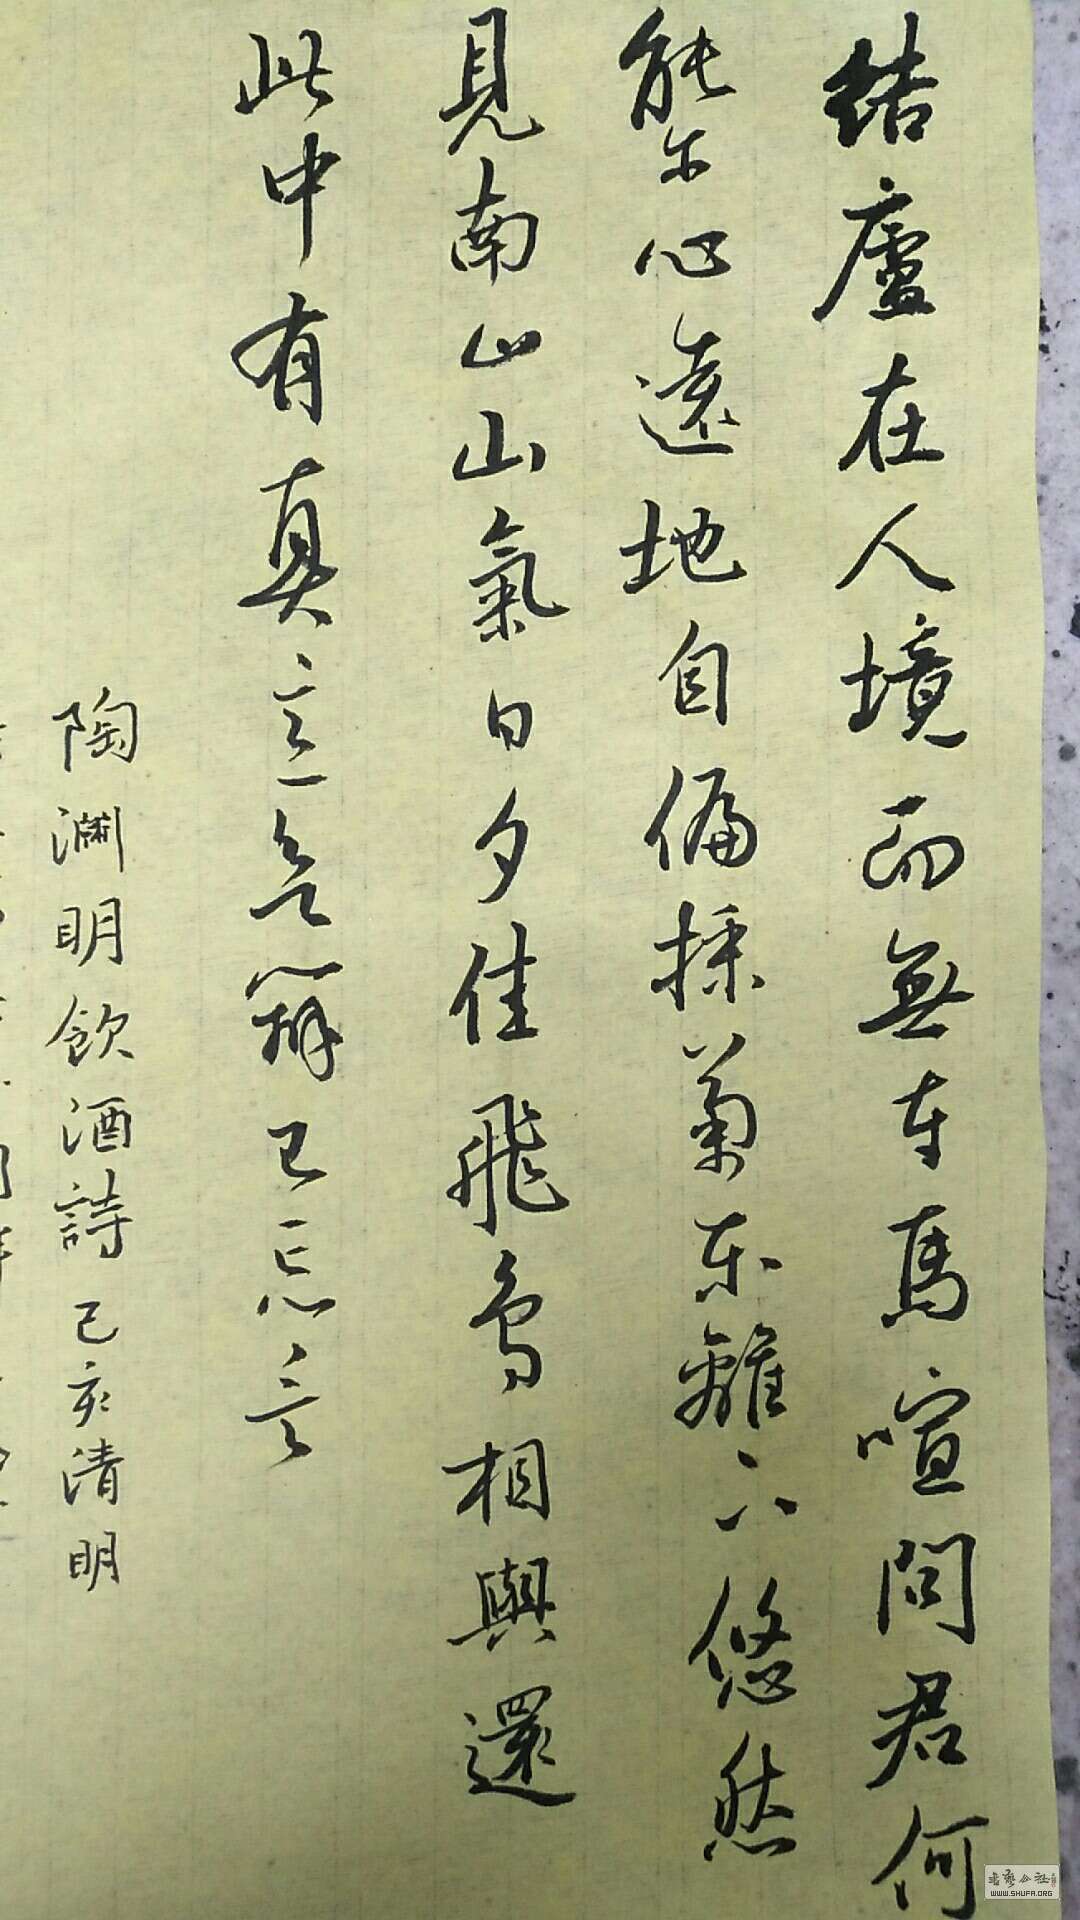 結廬在人境而無车馬喧問君何
能尔心遠地自偏採菊东籬下悠然
見南山山氣日夕佳飛鳥相與還
此中有真意欲辨已忘言
陶淵明飲酒詩 己亥清明
WWW.SHUFA.ORG